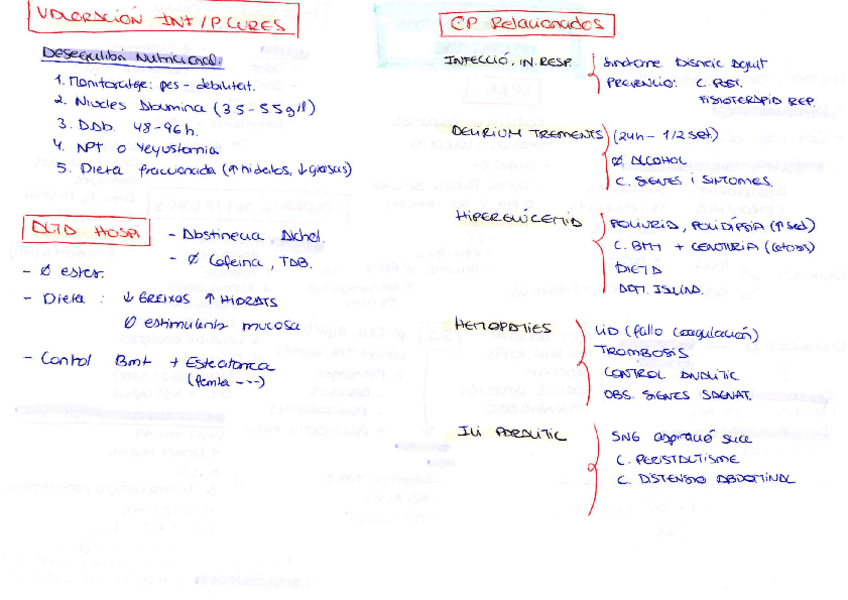 VALORACIÓN INF/P. CURES
Desequilibri Nutricional.
1. Monitoratge: pes - debilitat.
2. Nivells Albumina (35-55 g/l)
3. DAb. 48-96h.
4. NPT o Yeyustomia
5. Dieta fraccionada (↑hidratos, ↓grasas)
ALTA HOSP
- Abstinencia Alchol.
- Ø Cafeina, TAB.
- Ø estres.
- Dieta : ↓ GREIXOS ↑ HIDRATS
Ø estimulants mucosa
- Control Bmt + Esteatorrea
(femta ---)
CP Relacionados
INFECCIÓ, IN. RESP.
Sindrome Disneic Agut
PREVENCIÓ: C. POST.
FISIOTERAPIA REP.
DELIRIUM TREMENTS
(24h - 1/2 set.)
Ø ALCOHOL
C. SIGNES I SINTOMES.
HIPERGLUCEMIA
POLIURIA, POLIDIPSIA (↑sed)
C. BMT + CENTURIA (cetosis)
DIETA
ADM. ISULINA.
HEMOPATIES
CID (fallo coagulación)
TROMBOSIS
CONTROL ANALITIC
OBS. SIGNES SAGNAT.
ILI PARALITIC
SNG aspiració suca
C. PERISTALTISME
C. DISTENSIO ABDOMINAL